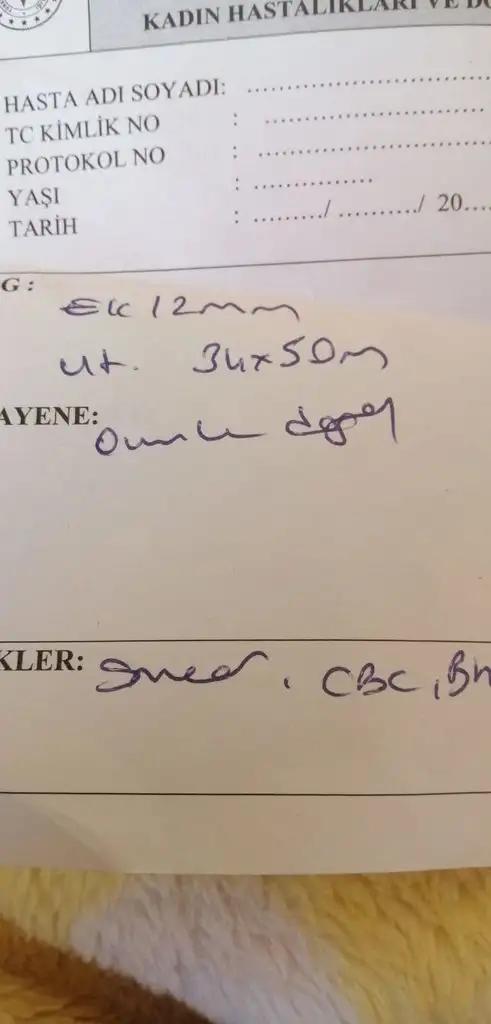 KADIN HASTALIKLARI VE DO
HASTA ADI SOYADI: ........................................
TC KİMLİK NO : ........................................
PROTOKOL NO : ........................................
YAŞI : ...............
TARİH : ........./ ........../ 20....
G :
Ek 12mm
ut. 34x50m
AYENE:
KLER: Smear, CBC, BH